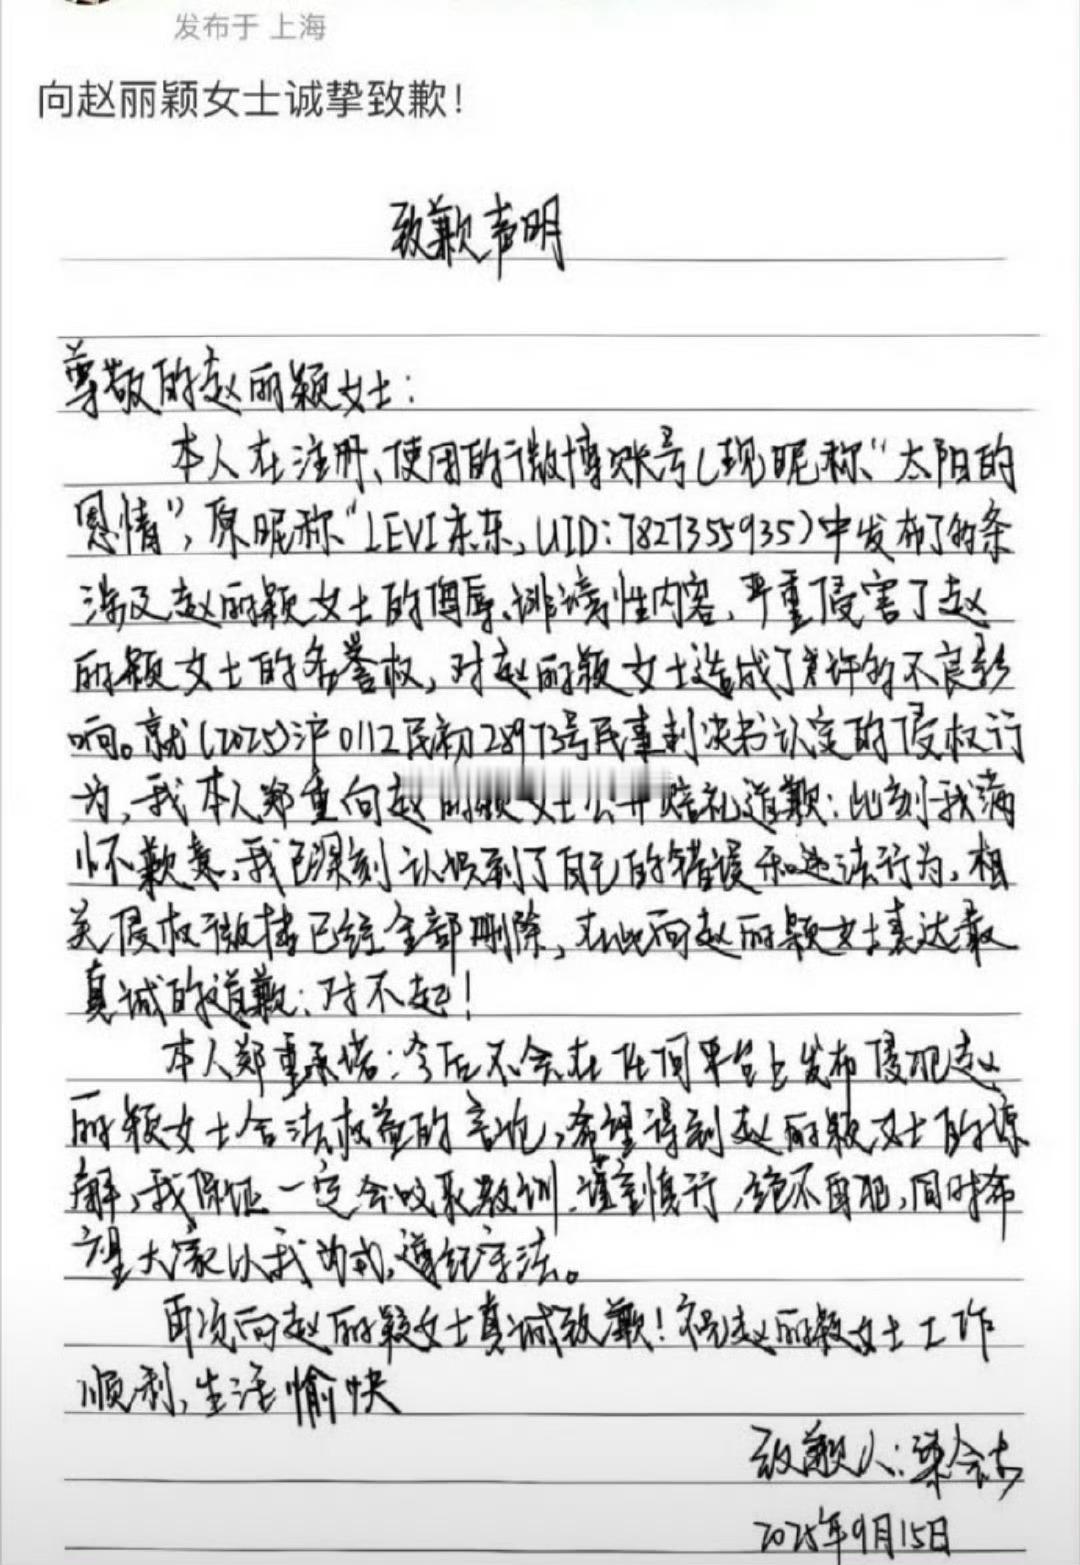 发布于 上海
向赵丽颖女士诚挚致歉!
致歉声明
尊敬的赵丽颖女士:
本人在注册、使用的微博账号(现昵称“太阳的
恩情”,原昵称“LEVI东东,UID:7827355935)中发布了的条
涉及赵丽颖女士的侮辱、诽谤性内容,严重侵害了赵
丽颖女士的名誉权,对赵丽颖女士造成了许的不良影
响。就(2025)沪0112民初28973号民事判决书认定的侵权行
为,我本人郑重向赵丽颖女士公开赔礼道歉:此刻我满
怀歉意,我已深刻认识到了自己的错误和违法行为,相
关侵权微博已经全部删除,在此向赵丽颖女士表达最
真诚的道歉:对不起!
本人郑重承诺:今后不会在任何平台上发布侵犯赵
丽颖女士合法权益的言论,希望得到赵丽颖女士的谅
解,我保证一定会吸取教训、谨言慎行,绝不再犯,同时希
望大家以我为戒,遵纪守法。
再次向赵丽颖女士真诚致歉!祝赵丽颖女士工作
顺利,生活愉快
致歉人:梁
2025年9月15日